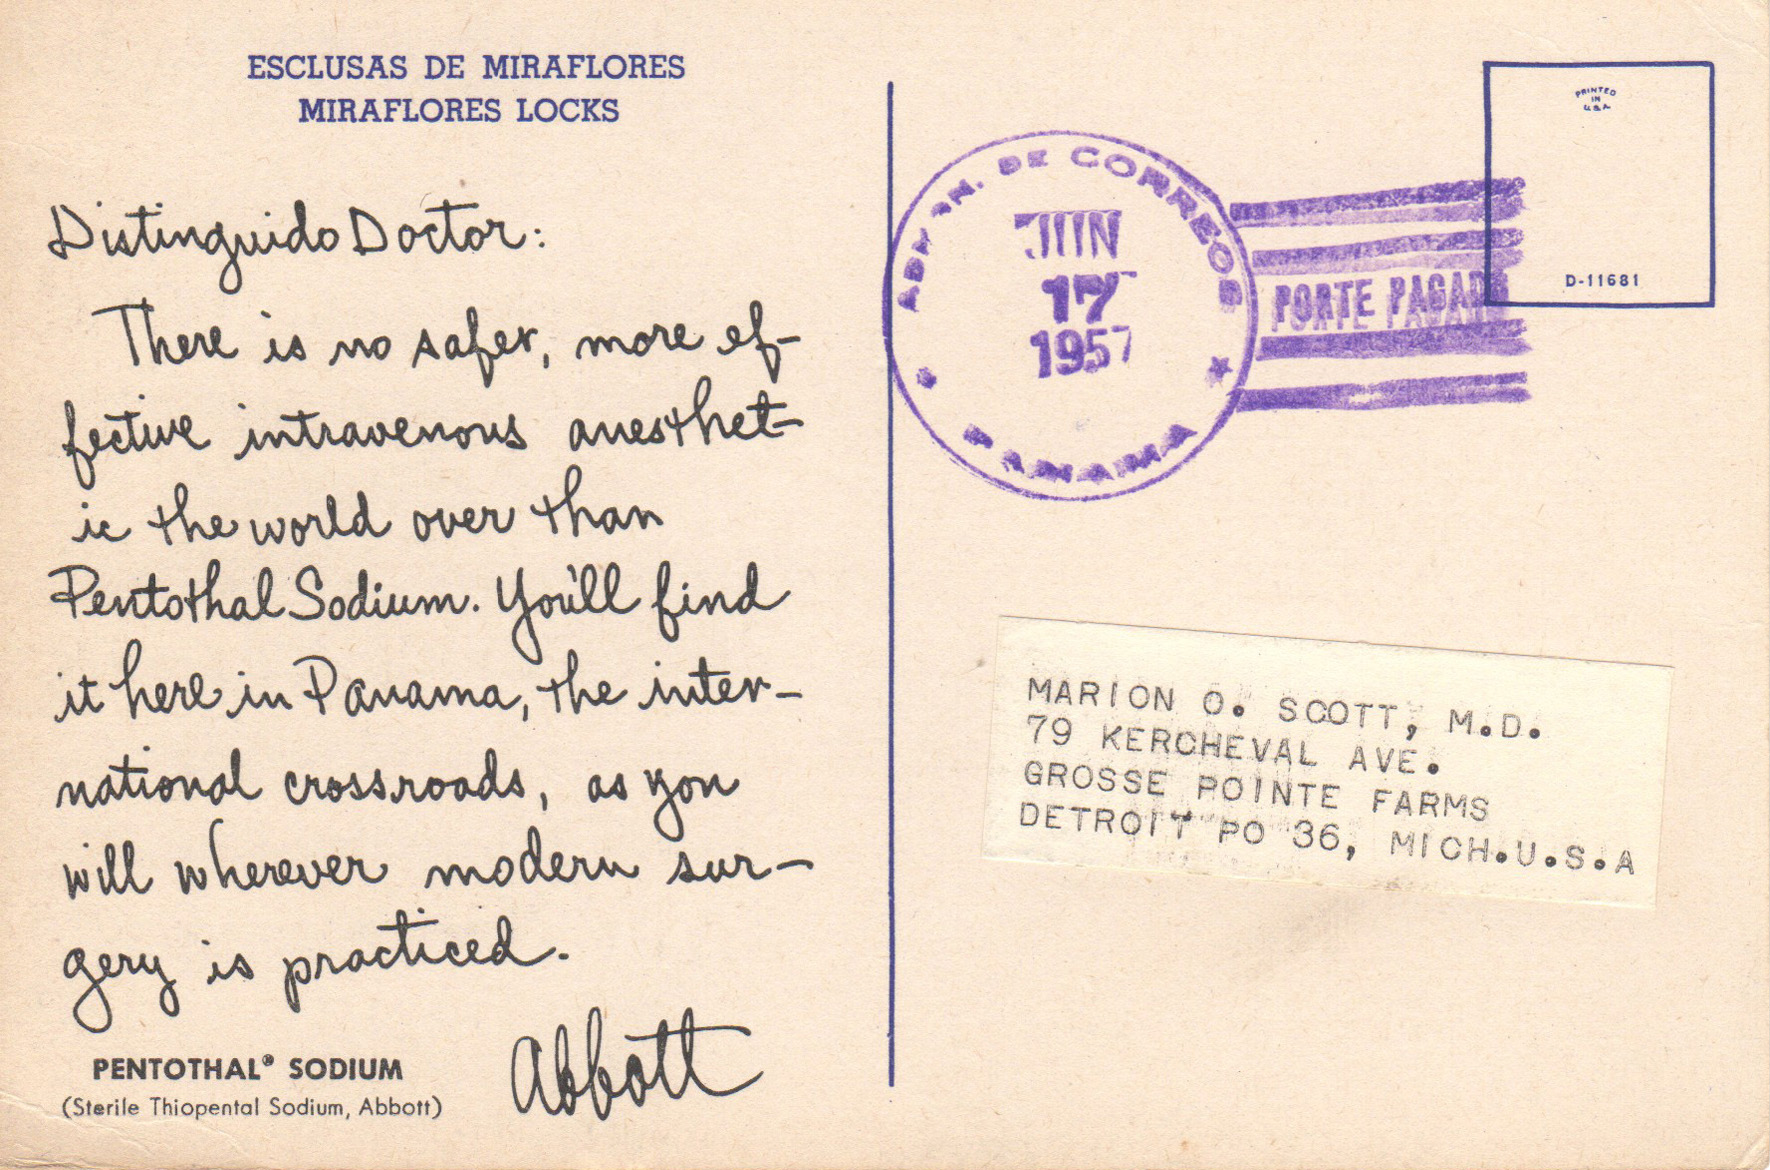 ESCLUSAS DE MIRAFLORES
MIRAFLORES LOCKS
Distinguido Doctor:
There is no safer, more ef-
fective intravenous anesthet-
ic the world over than
Pentothal Sodium. You'll find
it here in Panama, the inter-
national crossroads, as you
will wherever modern sur-
gery is practiced.
Abbott
PENTOTHAL® SODIUM
(Sterile Thiopental Sodium, Abbott)
PRINTED
IN
U.S.A.
D-11681
ADMON. DE CORREOS
JUN
17
1957
PANAMA
PORTE PAGADO
MARION O. SCOTT, M.D.
79 KERCHEVAL AVE.
GROSSE POINTE FARMS
DETROIT PO 36, MICH.U.S.A